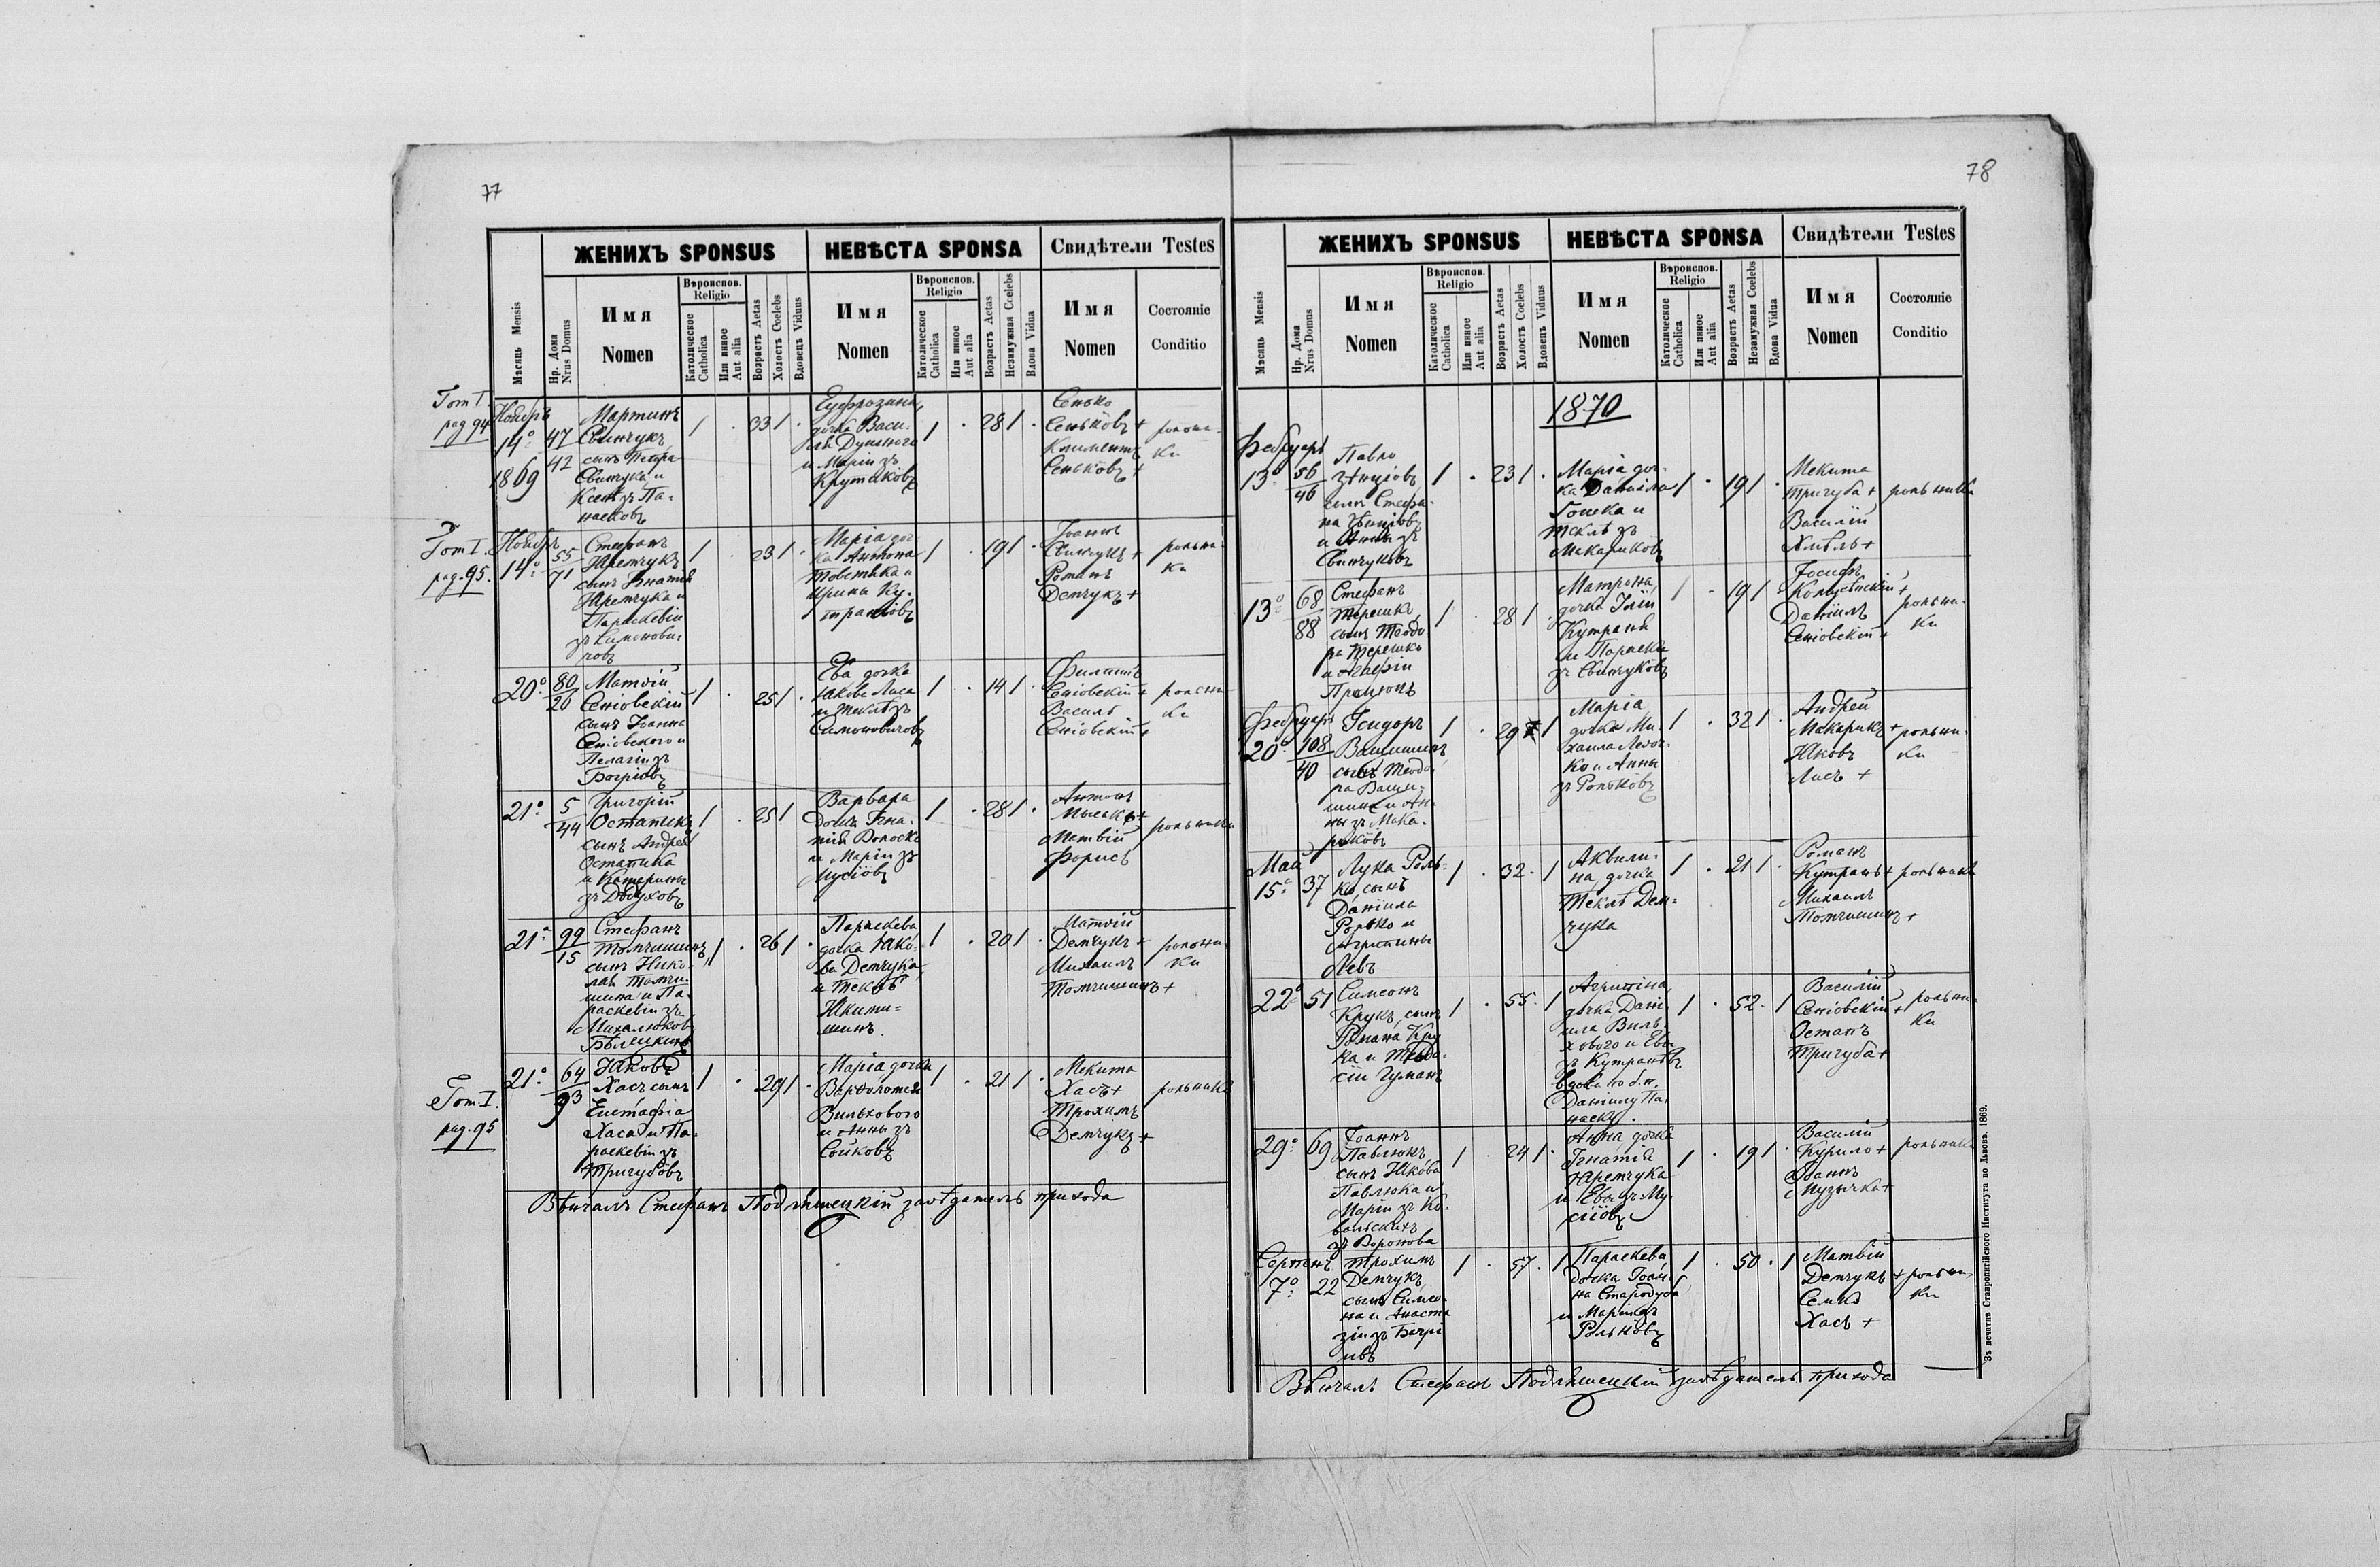 77
ЖЕНИХЪ SPONSUS
НЕВѢСТА SPONSA
Свидѣтели Testes
Мѣсяць Mensis
Нр. Дома
Nrus Domus
Имя
Nomen
Вѣроиспов.
Religio
Католическое
Catholica
Или инное
Aut alia
Возрастъ Aetas
Холостъ Coelebs
Вдовецъ Viduus
Имя
Nomen
Вѣроиспов.
Religio
Католическое
Catholica
Или инное
Aut alia
Возрастъ Aetas
Незамужная Coelebs
Вдова Vidua
Имя
Nomen
Состояніе
Conditio
Tom I
pag 94
Ноябръ
14º
1869
47
42
Мартинъ
Свинчукъ
сынъ Петра
Свинчука и
Ксені зъ Па-
насковъ
1 . 33 1 .
Еуфрозина,
дочка Васи-
и Маріи зъ
1 . 28 1 .
Сенько
Сеньковъ +
Климентъ
Сеньковъ +
рольни-
ки
Tom I.
pag. 95.
Ноябръ
14º
55
71
Стефанъ
Яремчукъ
сынъ Игнатія
Яремчука и
Параскевіи
зъ Симонови-
човъ
1 . 23 1 .
Марія доч
ка Антона
Товстюка и
Ирины Ку-
трановъ
1 . 19 1 .
Іоаннъ
Свинчукъ +
Романъ
Демчукъ +
рольни-
ки
20º
80
26
Матѳій
Сеніовскій
сынъ Іоанна
Сеніовского и
Пелагіи зъ
Багріовъ
1 . 25 1 .
Ева дочка
Якова Лиса
и Теклѣ зъ
Симоновичовъ
1 . 14 1 .
Филиппъ
Сеніовскій +
Василь
Сеніовскій +
рольни-
ки
21º
5
44
Григорій
Остапикъ
сынъ Андрея
Остапика
и Катерины
1 . 25 1 .
Варвара
дочка Игна-
тія Волоска
и Маріи зъ
Мусіовъ
1 . 28 1 .
Антонъ
Матвій
Форись
рольники
21º
99
15
Стефанъ
Томчишинъ,
сынъ Нико-
лая Томчи-
шина и Па-
раскевіи зъ
Михалюковъ
1 . 26 1 .
Параскева
дочка Яко-
ва Демчука
и Теклѣ
Якими-
шинъ.
1 . 20 1 .
Матѳій
Демчукъ +
Михаилъ
Томчишинъ +
рольни
ки
Tom. I.
pag. 95
21º
64
93
Яковъ
Хасъ сынъ
Евстафіа
Хаса и Па-
раскевіи зъ
Тригубовъ
1 . 29 1 .
Марія дочка
Варфоломея
Вильхового
и Анны зъ
Сойковъ
1 . 21 1 .
Мекита
Хасъ +
Трохимъ
Демчукъ +
рольники
Вѣнчалъ Стефанъ Подлѣшецкій завѣдатель прихода
78
ЖЕНИХЪ SPONSUS
НЕВѢСТА SPONSA
Свидѣтели Testes
Мѣсяць Mensis
Нр. Дома
Nrus Domus
Имя
Nomen
Вѣроиспов.
Religio
Католическое
Catholica
Или инное
Aut alia
Возрастъ Aetas
Холостъ Coelebs
Вдовецъ Viduus
Имя
Nomen
Вѣроиспов.
Religio
Католическое
Catholica
Или инное
Aut alia
Возрастъ Aetas
Незамужная Coelebs
Вдова Vidua
Имя
Nomen
Состояніе
Conditio
1870
Фебруарь
13º
56
46
Павло
сынъ Стефа-
и Анны зъ
Свинчуковъ
1 . 23 1 .
Марія доч-
ка Даніила
Гопека и
Теклѣ зъ
Макариковъ
1 . 19 1 .
Мекита
Тригуба +
Василій
Хмѣль +
рольники
13º
68
88
Стефанъ
Терешко
сынъ Теодо
ра Терешка
1 . 28 1 .
Матрона
дочка Іліи
Кутраня
и Параски
зъ Свинчуковъ
1 . 19 1
Іосифъ
Даніилъ
Сеніовскій +
рольни-
ки
Фебруарь
20º
108
40
Ісидоръ
Вашишинъ
сынъ Теодо-
ра Ваши-
шина и Ан-
ны зъ Мака-
риковъ
1 . 29 1
Марія
дочка Ми-
хаила
ко и Анны
зъ Рольковъ
1 . 32 1 .
Андрей
Макарикъ +
Яковъ
Лисъ +
рольни-
ки
Май
15º
37
Лука Роль-
ко, сынъ
Даніила
Ролько и
Агрипины
Левъ
1 . 32 . 1
Аквили-
на дочка
Теклѣ Дем-
чука
1 . 21 1 .
Романъ
Кутрань +
Михаилъ
Томчишинъ +
рольники
22º
51
Симеонъ
Крукъ, сынъ
Романа Кру
ка и Теодо-
сіи Гуманъ
1 . 55 . 1
Агрипина
дочка Дані-
ила Виль-
хового и Евы
зъ Кутрановъ
вдова по б. п.
Даніилу Па-
наску.
1 . 52 . 1
Василій
Сеніовскій +
Остапъ
Тригуба +
рольни-
ки
29º
69
Іоаннъ
Павлюкъ,
сынъ Якова
Павлюка и
Маріи зъ Ко-
вальскихъ
зъ Воронова
1 . 24 1 .
Анна дочка
Игнатія
Яремчука
и Евы зъ Му-
сіовъ
1 . 19 1 .
Василій
Курило +
Іоаннъ
Музычка +
рольники
Серпень
7º
22
Трохимъ
Демчукъ
сынъ Симео-
на и Анаста
зіи зъ Багрі
ивъ
1 . 57 . 1
Параскева
дочка Іоан-
на Стародуба
и Маріи зъ
Рольковъ
1 . 50 . 1
Матвій
Демчукъ +
Семко
Хасъ +
рольни-
ки
Вѣнчалъ Стефанъ Подлѣшецкій завѣдатель прихода
Зъ печатнѣ Ставропигійского Института во Львовѣ. 1869.